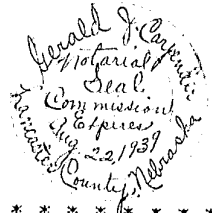 Gerald J. Carpenter
Notarial
Seal.
Commission
Expires
Aug. 22, 1939
Lancaster County, Nebraska
* * * * * *